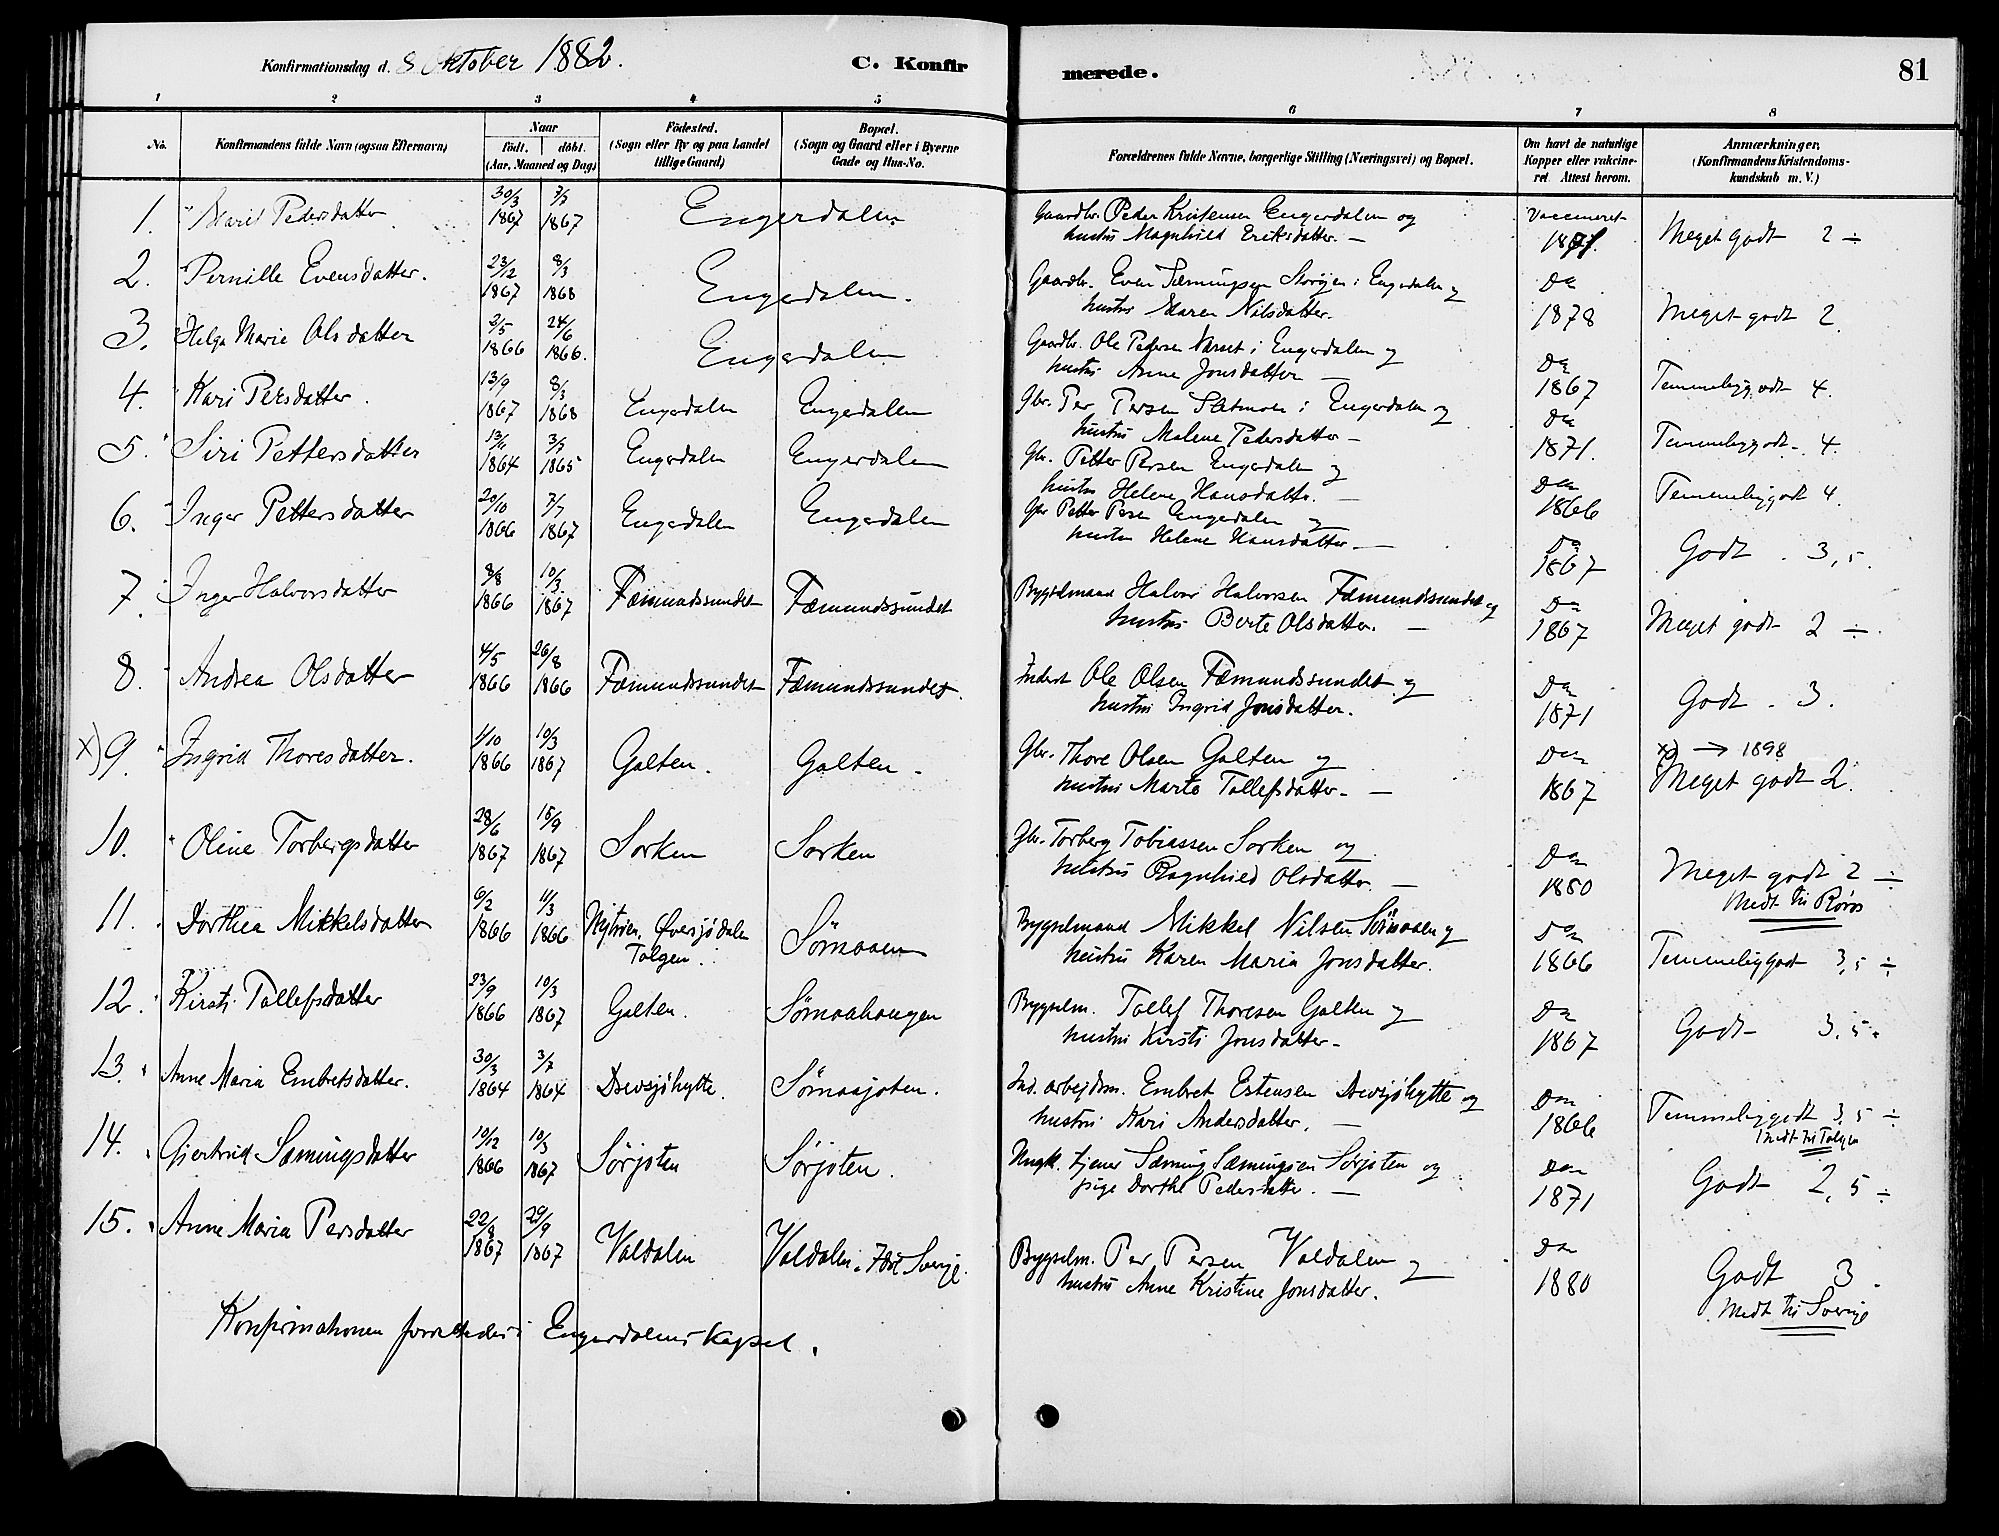 Konfirmationsdag d. 8 Oktober 1882. C. Konfir merede. 81
1 2 3 4 5 6 7 8
No. Konfirmandens fulde Navn (ogsaa Efternavn) Naar födt. döbt. (Aar, Maaned og Dag) Födested. (Sogn eller By og paa Landet tillige Gaard) Bopæl. (Sogn og Gaard eller i Byerne Gade og Hus-No. Forældrenes fulde Navne, borgerlige Stilling (Næringsvei) og Bopæl. Om havt de naturlige Kopper eller vakcineret. Attest herom. Anmærkninger. (Konfirmandens Kristendomskundskab m. V.)
1. Marit Pedersdatter 30/3 1867 7/7 1867 Engerdalen Gaardbr. Peder Kristensen Engerdalen og Vaccineret
hustru Magnhild Eriksdatter. — 1871. Meget godt 2 ÷
2. Pernille Evensdatter. 23/12 1867 8/3 1868 Engerdalen. Gaardbr. Even Sæmingsen Storøjen i Engerdalen og Do
hustru Maren Nilsdatter. 1878 Meget godt 2.
3. Helga Marie Olsdatter 2/5 1866 24/6 1866. Engerdalen Gaardbr. Ole Pedersen i Engerdalen og Do
hustru Anne Jonsdatter — 1867 Temmelig godt 4.
4. Kari Persdatter. 13/9 1867 8/3 1868 Engerdalen Engerdalen Gbr. Per Persen Sletmoen i Engerdalen og Do
hustru Malene Pedersdatter — 1871. Temmelig godt 4.
5. Siri Pettersdatter 13/11 1864 3/7 1865 Engerdalen Engerdalen Gbr. Petter Persen Engerdalen og Do
hustru Helene Hansdatter. — 1866 Temmelig godt 4.
6. Inger Pettersdatter 20/10 1866 7/7 1867 Engerdalen Engerdalen Gbr Petter Persen Engerdalen og Do
hustru Helene Hansdatter — 1867 Godt. 3,5.
7. Inger Halvorsdatter 8/8 1866 10/3 1867 Fæmundssundet Fæmundssundet Bygselmand Halvor Halvorsen Fæmundssundet og Do
hustru Berte Olsdatter. — 1867 Meget godt 2 ÷.
8. Andrea Olsdatter 4/5 1866 26/8 1866 Fæmundssundet Fæmundssundet. Inderst Ole Olsen Fæmundssundet og Do
hustru Ingrid Jonsdatter. 1871 Godt. 3.
x) 9. Ingrid Thoresdatter. 1/10 1866 10/3 1867 Galten. Galten. Gbr. Thore Olsen Galten og Do x) → 1898
hustru Marte Tollefsdatter — 1867 Meget godt 2.
10. Oline Torbergsdatter 28/6 1867 15/9 1867 Sorken Sorken Gbr. Torberg Tobiassen Sorken og Do
hustru Ragnhild Olsdatter. — 1880 Meget godt 2 ÷
Medt til Røros
11. Dorthea Mikkelsdatter 6/2 1866 11/3 1866 Nytrøen, Øversjødalen Tolgen. Sømaaen Bygselmand Mikkel Nilsen Sømaaen og Do
hustru Karen Maria Jonsdatter. 1866 Temmelig godt 3,5 ÷
12. Kirsti Tollefsdatter 23/9 1866 10/3 1867 Galten. Sømaahaugen Bygselm. Tollef Thoresen Galten og Do
hustru Kirsti Jonsdatter — 1867 Godt 3,5.
13. Anne Maria Embretsdatter. 30/3 1864 3/7 1864 Drevsjöhytte. Sømaajoten. Ind. arbejdsm. Embret Estensen Drevsjöhytte og Do
hustru Kari Andersdatter. — 1866 Temmelig godt 3,5 ÷
Medt til Tolgen
14. Gjertrud Sæmingsdatter 10/12 1866 10/3 1867 Sørjoten Sørjoten. Ungk. tjener Sæming Sæmingsen Sørjoten og Do
pige Dorthe Pedersdatter. — 1871 Godt 2,5 ÷
15. Anne Maria Persdatter 22/8 1867 29/9 1867 Valdalen Valdalen. Idre Sverige. Bygselm. Per Persen Valdalen og Do
hustru Anne Kristine Jonsdatter. 1880 Godt 3.
Medt til Sverige
Konfirmationen forrettedes i Engerdalens Kapel.